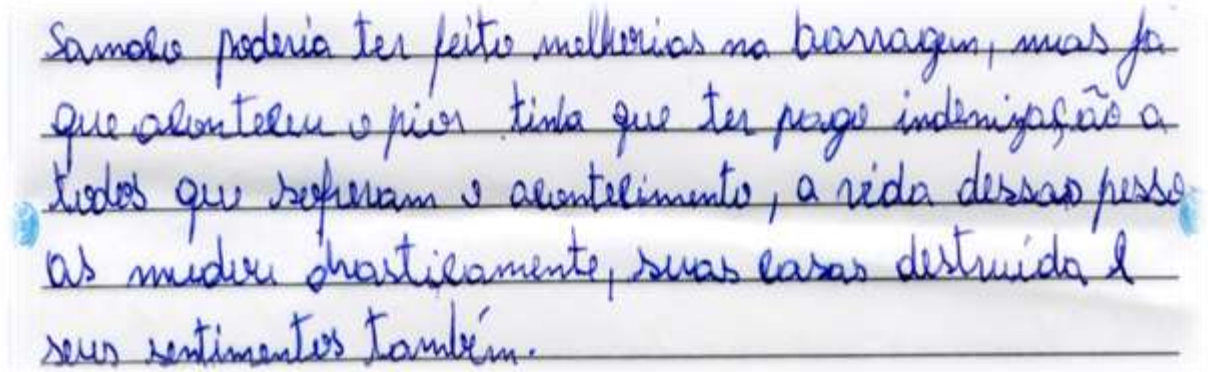 Samalo poderia ter feito melhorias na barragem, mas ja
que aconteceu o pior tinha que ter pago indenização a
todos que sofreram o acontecimento, a vida dessas pesso
as mudou drasticamente, suas casas destruída e
seus sentimentos também.